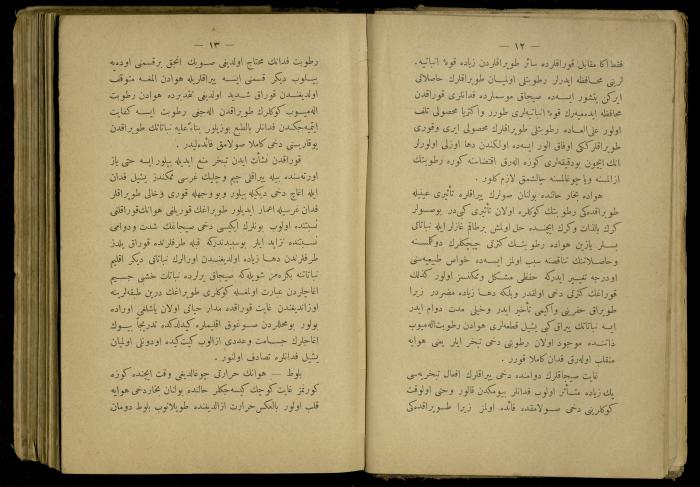 — ١٢ —
فقط اكا مقابل قوراقلرده سائر طوبراقلردن زياده قوهٔ انباتيه
لرینی محافظه ایدرلر رطوبتلی اولمیان طوبراقلرك حاصلاتی
ایركن یتشور ایسه‌ده صیجاق موسملرده فدانلری قوراقدن
محافظه ایده‌میه‌رك قوهٔ انباتیه‌لری طورر واكثریا محصولی تلف
اولور علی‌العاده رطوبتلی طوبراقلرك محصولی ایری وقوری
طوبراقلرككی اوفاق الور ایسه‌ده اولكندن دها اوزلی اولورلر
انك ایچون بودقیقه‌لری كوزه الەرق اقتضاسنه كوره رطوبتك
ازالمسنه ویاچوغالمسنه چالشمق لازم كلور .
هواده بخار حالنده بولنان صولرك یپراقلره تأثیری عینیله
طوبراقده‌كی رطوبتك كوكلره اولان تأثیری كبی‌در بوصولر
كرك بالذات وكرك ایچنده حل اولنش برطاقم غازلر ایله نباتاتی
بسلر یازین هواده رطوبتك كثرتی چیچكلرك دوكلمسنه
وحاصلاتنك تناقصنه سبب اولمز ایسه‌ده خواص طبیعیه‌سنی
اودرجه تغییر ایدركه حفظی مشكل وممكنسز اولور كذلك
قوراغك كثرتی دخی اولقدر وبلكه دها زیاده مضردر زیرا
طوبراق حفرینی واكیمی تأخیر ایدر وخیلی مدت دوام ایدر
ایسه نباتاتك یپراق كبی یشیل قطعه‌لری هوادن رطوبت‌اله‌میوب
ذاتنده موجود اولان رطوبتی دخی تبخر ایلر یعنی هوایه
منقلب اوله‌رق فدان كاملا قورر .
غایت صیجاقلرك دوامنده دخی یپراقلرك افعال تبخریه‌سی
پك زیاده متأثر اولوب فدانلر بیومكدن قالور وحتی اولوقت
كوكلرینی دخی صولامقده فائده اولمز زیرا طوبراقده‌كی
— ١٣ —
رطوبت فدانك محتاج اولدیغی صویك انجق برقسمنی اوده‌یه
بیلوب دیكر قسمنی ایسه یپراقلریله هوادن المغه متوقف
اولدیغندن قوراق شدید اولدیغی تقدیرده هوادن رطوبت
اله‌میوب كوكلرك طوبراقدن اله‌جنی رطوبت ایسه كفایت
ایتمیه‌جكندن فدانلر بالطبع بوزیلور بناءً علیه نباتاتك طوبراقدن
یوقاریسنی دخی كاملا صولامق فائده‌لیدر .
قوراقدن نشأت ایدن تبخر منع ایدیله بیلور ایسه حتی یاز
اورته‌سنده بیله یپراقلی چیم وچلیك غرسی ممكندر یشیل فدان
ایله اغاج دخی دیكیله بیلور وبو وجهله قوری وخالی طوبراقلر
فدان غرسیله اعمار ایدیلور طوبراغك قوریلغی هوانك قوراقلغی
نسبتنده اولوب بونلرك ایكیسی دخی صیجاغك شدت ودوامی
نسبتنده تزاید ایلر بوسببدندركه قبله طرفلرنده قوراق یلدز
طرفلرندن دها زیاده اولدیغندن اورالرك نباتاتی دیكر اقلیم
نباتاتنه بكزه‌من شویله‌كه صیجاق یرلرده نباتات خشی جسیم
اغاجلردن عبارت اولمغله كوكلری طوبراغك درین طبقه‌لرینه
اوزاندیغندن غایت قوراقده مدار حیاتی اولان یاشلغی اوراده
بولور بومحللردن صوغوق اقلیملره كیدلدكده تدریجاً بیوك
اغاجلرك جسامت وعددی ازالوب كیت كیده اودونلی اولمیان
یشیل فدانلره تصادف اولنور .
بلوط — هوانك حرارتی چوغالدیغی وقت ایچنده كوزه
كورنمز غایت كوچك كیسه‌جكلر حالنده بولنان بخار دخی هوایه
قلب اولور بالعكس حرارت ازالدیغنده طوپلانوب بلوط دومان